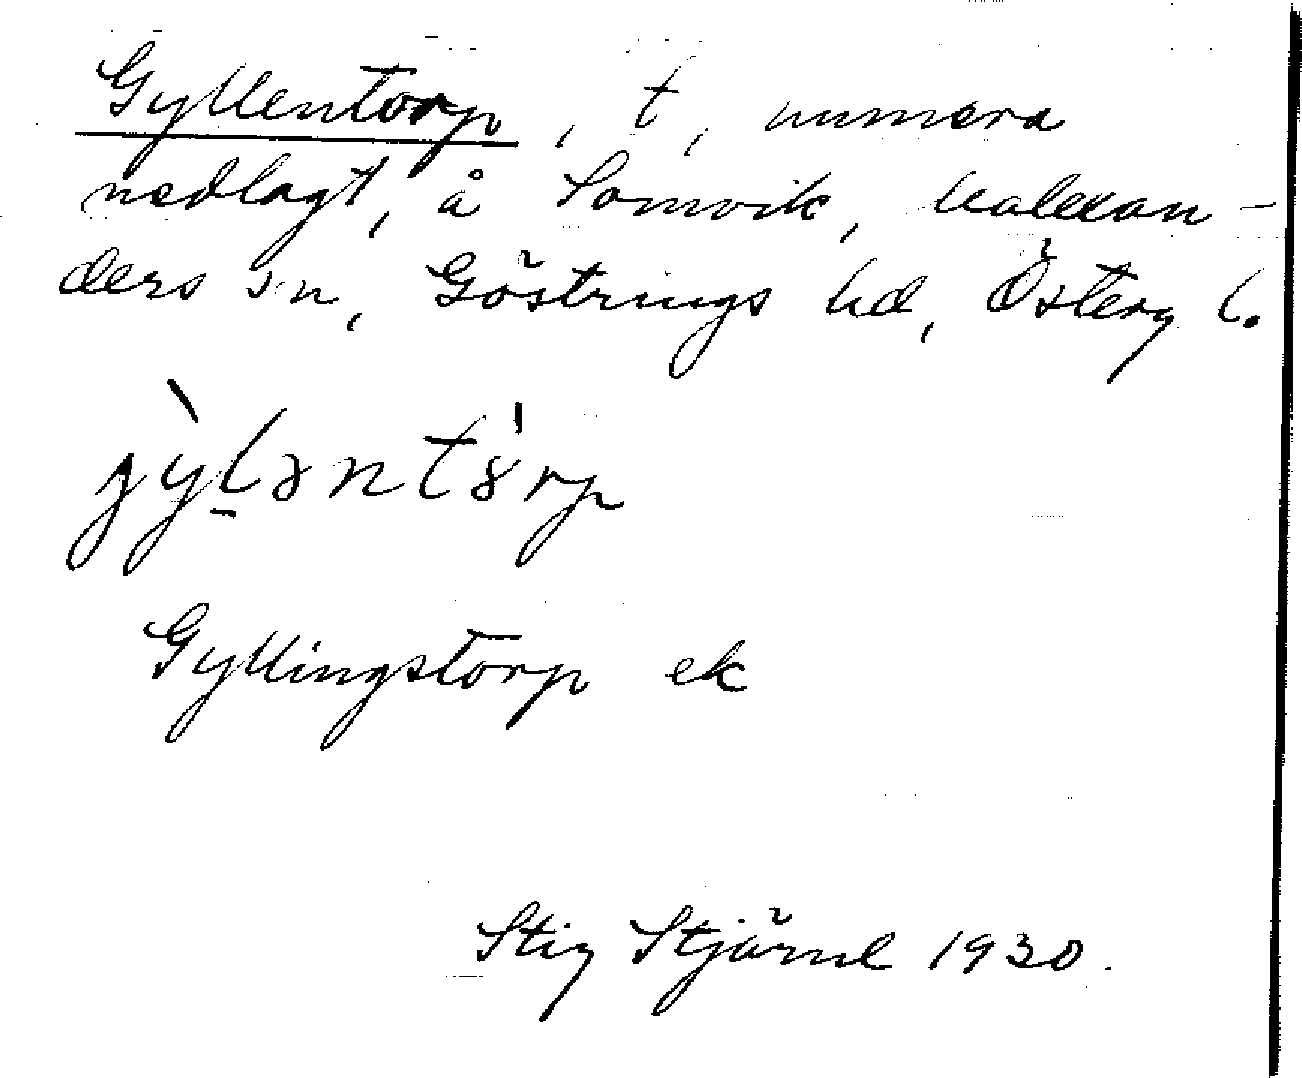 Gyllentorp, t, numera
nedlagt, å Somvik, Valexan-
ders sn, Göstrings hd, Österg l.
Gyllingstorp ek
Stig Stjärnl 1930.